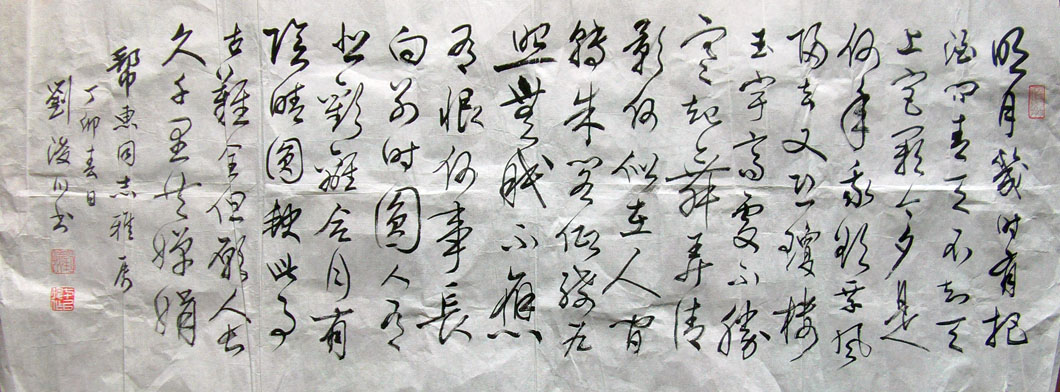 明月幾时有把
酒问青天不知天
上宫闕今夕是
何年我欲乘风
归去又恐瓊楼
玉宇高處不勝
寒起舞弄清
影何似在人间
轉朱阁低綺户
照無眠不應
有恨何事長
向别时圓人有
悲歡離合月有
陰晴圓缺此事
古難全但願人长
久千里共嬋娟
幫惠同志雅属
丁卯春日
劉浚川书